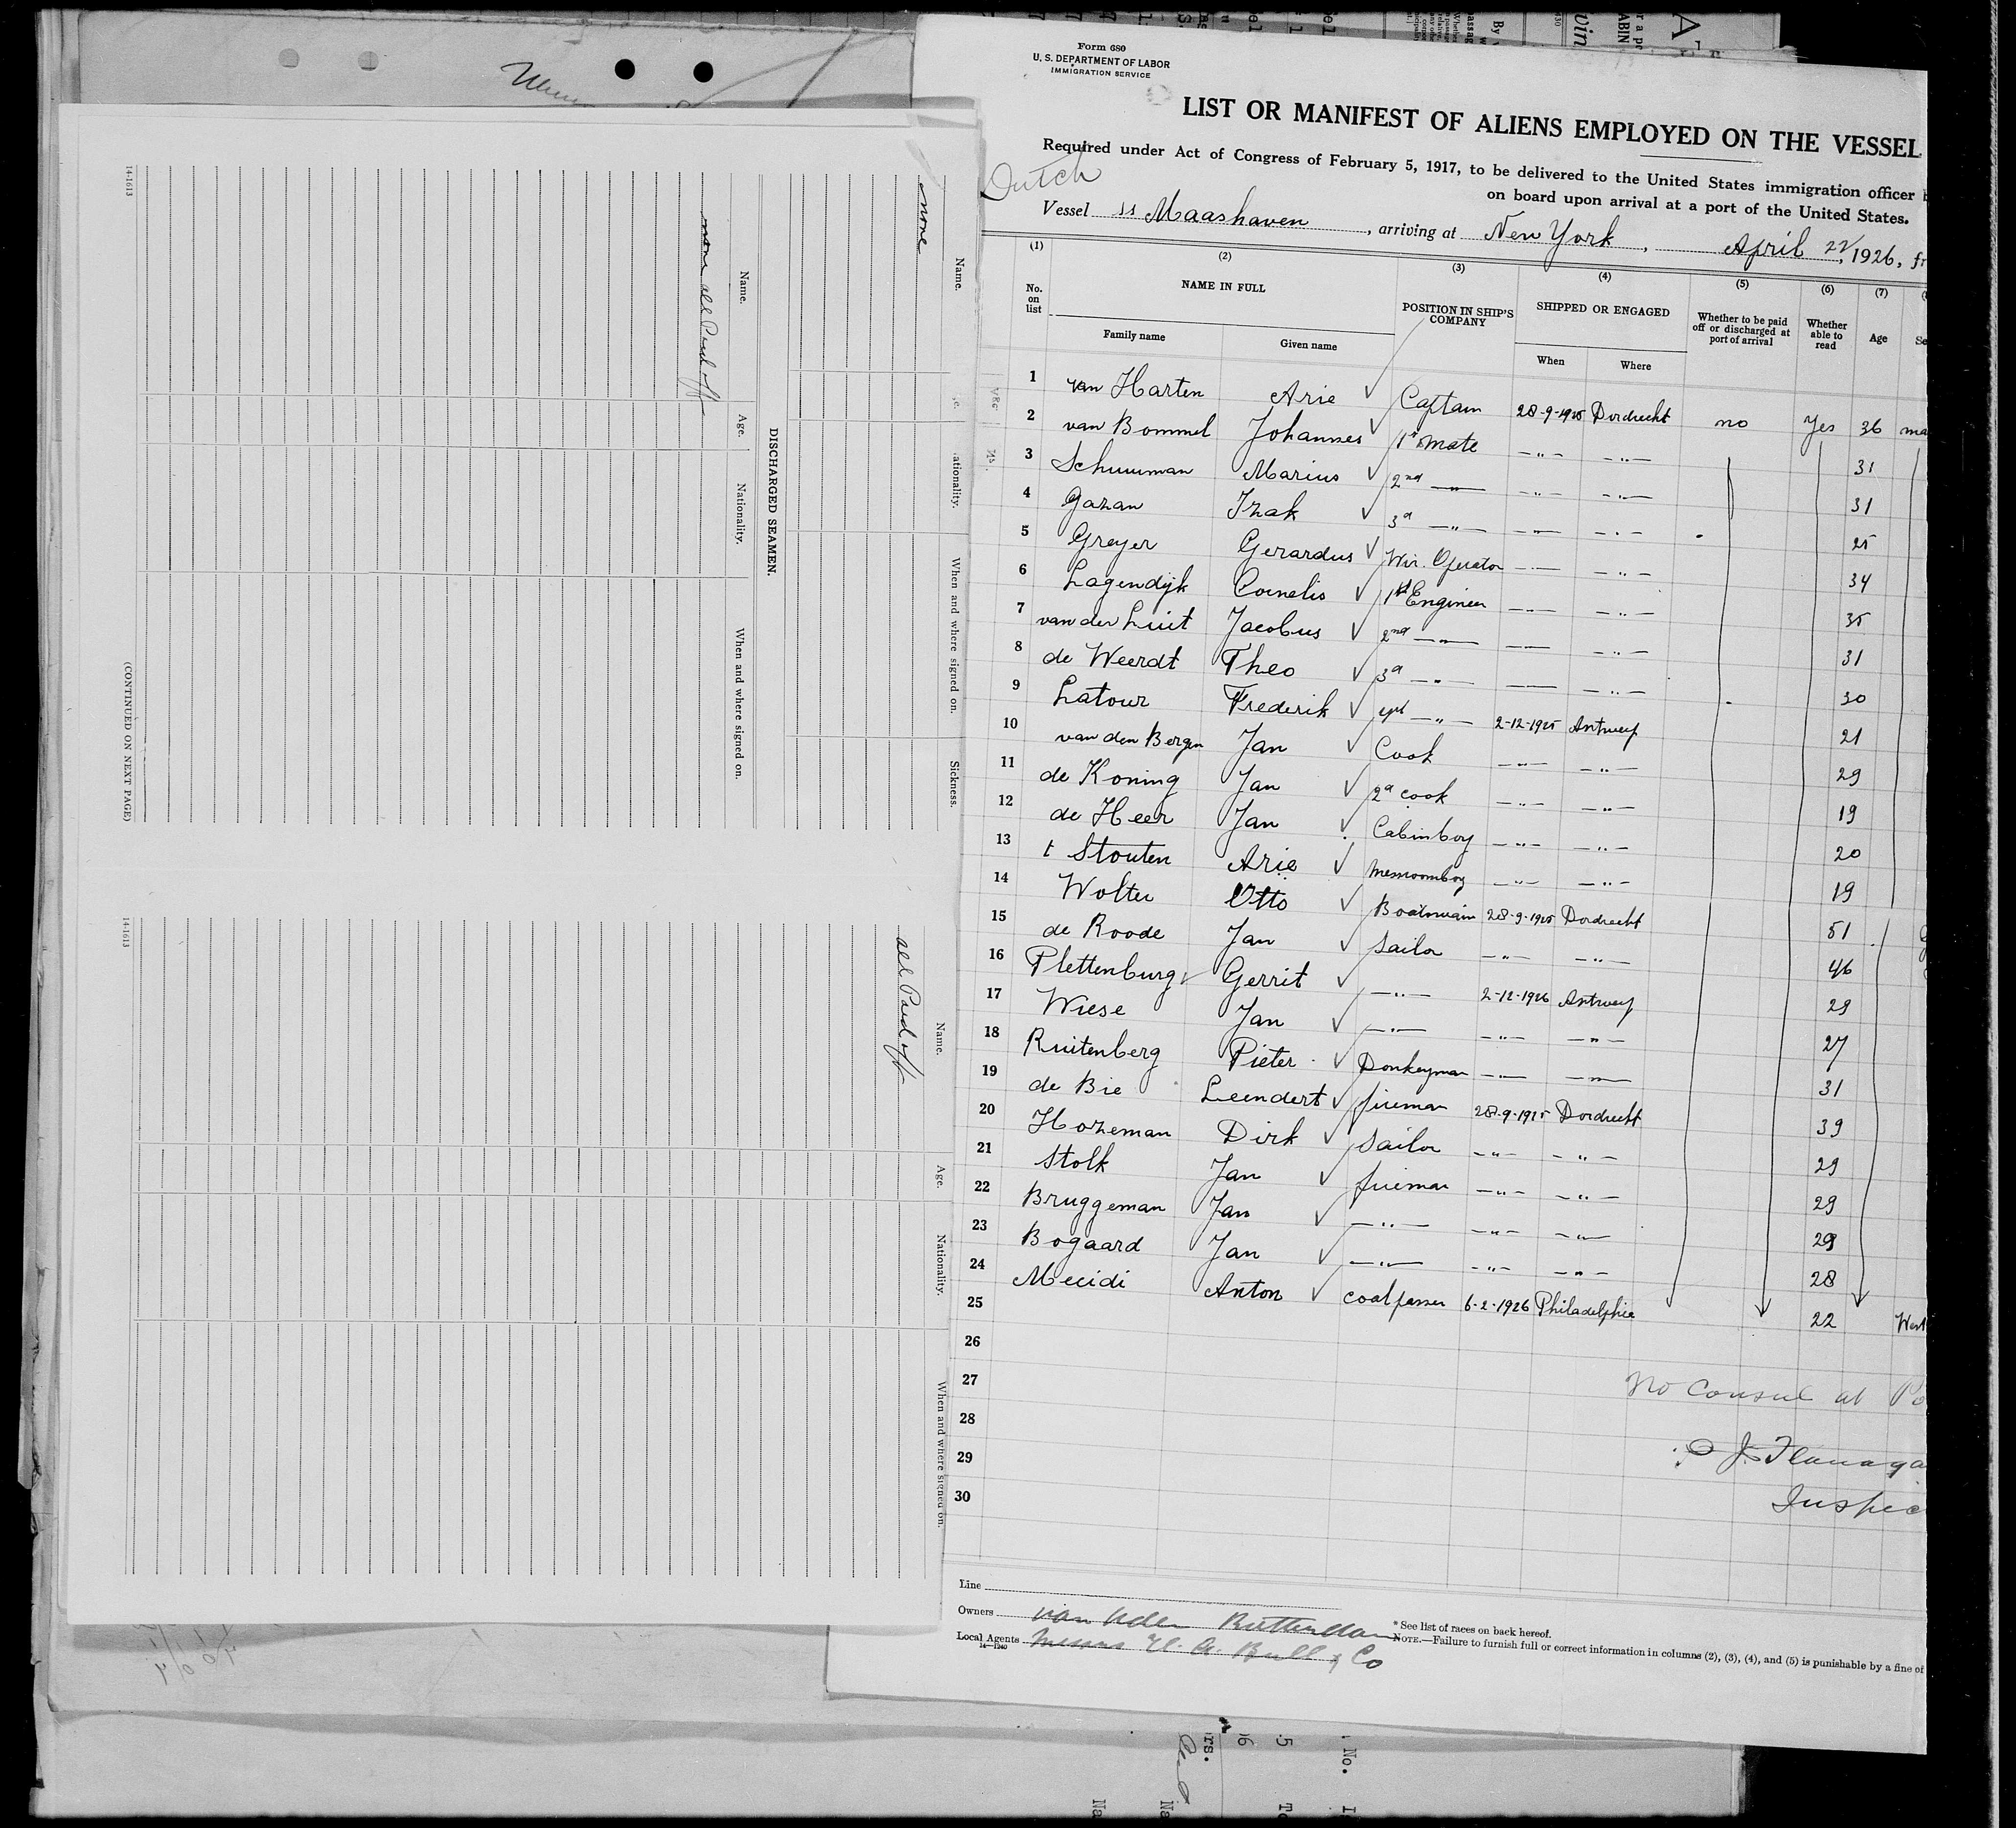 Form 680
U. S. DEPARTMENT OF LABOR
IMMIGRATION SERVICE
LIST OR MANIFEST OF ALIENS EMPLOYED ON THE VESSEL
Required under Act of Congress of February 5, 1917, to be delivered to the United States immigration officer
on board upon arrival at a port of the United States.
Dutch
Vessel ss Maashaven, arriving at New York, April 22, 1926, fr
(1) (2) (3) (4) (5) (6) (7)
No. on list NAME IN FULL POSITION IN SHIP'S COMPANY SHIPPED OR ENGAGED Whether to be paid off or discharged at port of arrival Whether able to read Age Se
Family name Given name When Where
1 van Harten Arie Captain 28-9-1925 Dordrecht no Yes 36 ma
2 van Bommel Johannes 1st mate -"- -"- 31
3 Schuurman Marius 2nd -"- -"- -"- 31
4 Gazan Izak 3d -"- -"- -"- 25
5 Greyer Gerardus Wir. Operator -"- -"- 34
6 Lagendijk Cornelis 1st Engineer -"- -"- 35
7 van der Luit Jacobus 2nd -"- -"- -"- 31
8 de Weerdt Theo 3d -"- -"- -"- 30
9 Latour Frederik -"- 2-12-1925 Antwerp 21
10 van den Bergen Jan Cook -"- -"- 29
11 de Koning Jan 2d cook -"- -"- 19
12 de Heer Jan Cabinboy -"- -"- 20
13 't Stouten Arie Messroomboy -"- -"- 19
14 Wolter Otto Boatswain 28-9-1925 Dordrecht 51
15 de Roode Jan Sailor -"- -"- 46
16 Plettenburg Gerrit -"- 2-12-1926 Antwerp 29
17 Wiese Jan -"- -"- -"- 27
18 Ruitenberg Pieter Donkeyman -"- -"- 31
19 de Bie Leendert fireman 28-9-1925 Dordrecht 39
20 Hozeman Dirk Sailor -"- -"- 29
21 Stolk Jan fireman -"- -"- 29
22 Bruggeman Jan -"- -"- -"- 29
23 Bogaard Jan -"- -"- -"- 28
24 Anton coalpasser 6-2-1926 Philadelphia 22 West
25
26
27 No Consul at Po
28
29 P J Flanaga
30 Inspec
Line
Owners van Uden Rotterdam
Local Agents Messrs A. Bull & Co
14—1240
* See list of races on back hereof.
NOTE.—Failure to furnish full or correct information in columns (2), (3), (4), and (5) is punishable by a fine of
Name. ationality. When and where signed on. Sickness.
none
DISCHARGED SEAMEN.
Name. Age. Nationality. When and where signed on.
none all Paid off
14-1613
(CONTINUED ON NEXT PAGE)
Name. Age. Nationality. When and where signed on.
all Paid off
14-1613